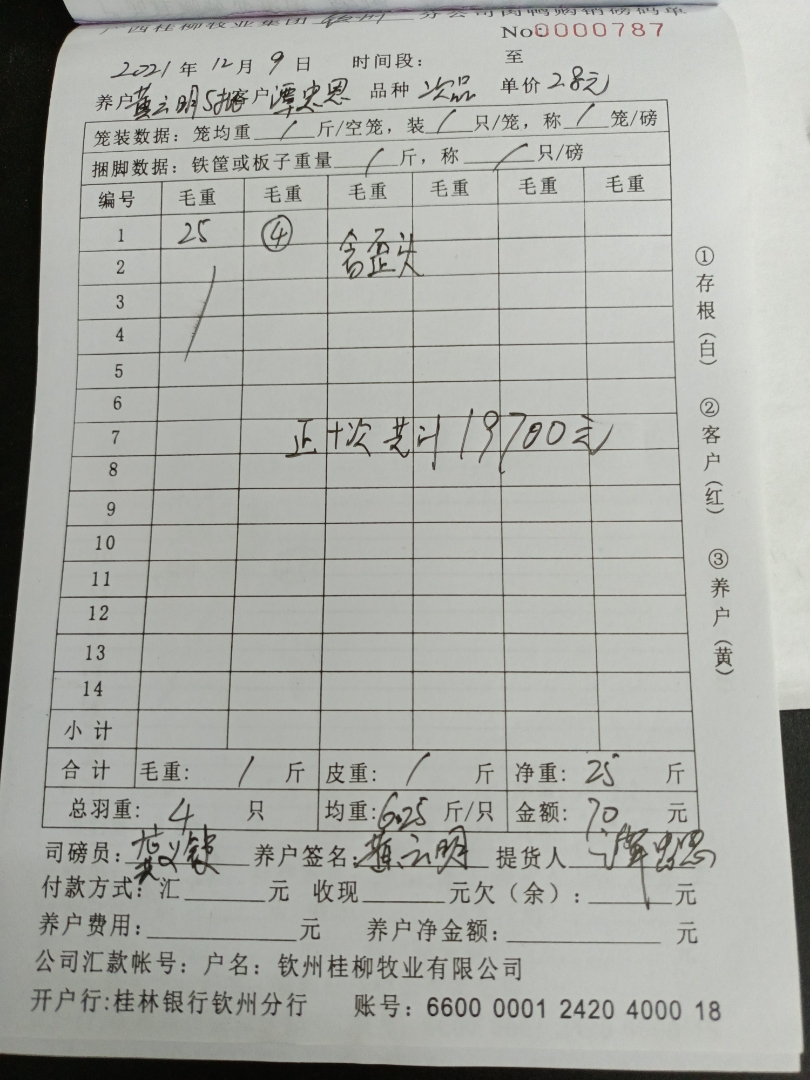 广西桂柳牧业集团 钦州 分公司肉鸭购销磅码单
No:0000787
2021年12月9日 时间段: 至
养户黄云明5振客户潭忠恩 品种次品 单价2.8元
笼装数据:笼均重/斤/空笼,装/只/笼,称/笼/磅
捆脚数据:铁筐或板子重量/斤,称/只/磅
编号 毛重 毛重 毛重 毛重 毛重 毛重
1 25 ④ 含歪头
2
3
4
5
6
7 正+次共计19700元
8
9
10
11
12
13
14
小计
合计 毛重:/斤 皮重:/斤 净重:25斤
总羽重:4只 均重:6.25斤/只 金额:70元
司磅员: 养户签名:黄云明 提货人潭忠恩
付款方式:汇____元 收现____元欠(余):____元
养户费用:____元 养户净金额:____元
公司汇款帐号:户名:钦州桂柳牧业有限公司
开户行:桂林银行钦州分行 账号:6600 0001 2420 4000 18
①存根(白)
②客户(红)
③养户(黄)